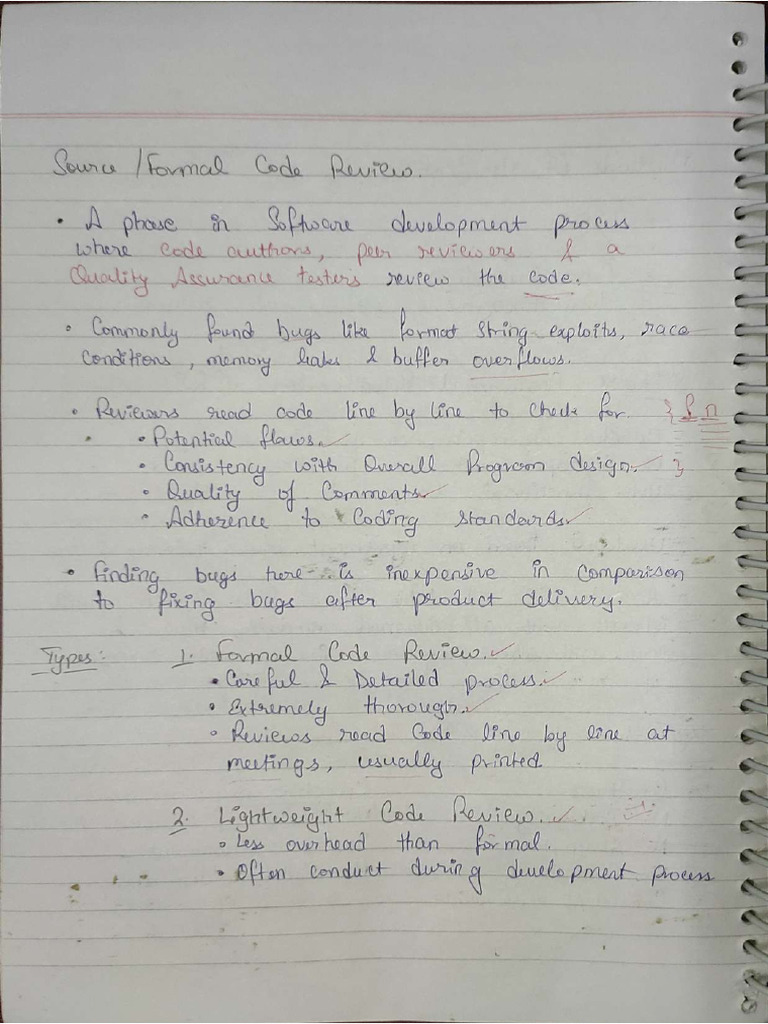 Source / Formal Code Review.
• A phase in Software development process
where code authors, peer reviewers & a
Quality Assurance testers review the code.
• Commonly found bugs like format string exploits, race
conditions, memory leaks & buffer overflows.
• Reviewers read code line by line to check for.
• Potential flaws.
• Consistency with Overall Program design.
• Quality of Comments
• Adherence to Coding standards
• finding bugs here is inexpensive in comparison
to fixing bugs after product delivery.
Types: 1. Formal Code Review.
• Careful & Detailed process.
• Extremely thorough.
• Reviews read Code line by line at
meetings, usually printed
2. Lightweight Code Review.
• Less overhead than formal.
• Often conduct during development process